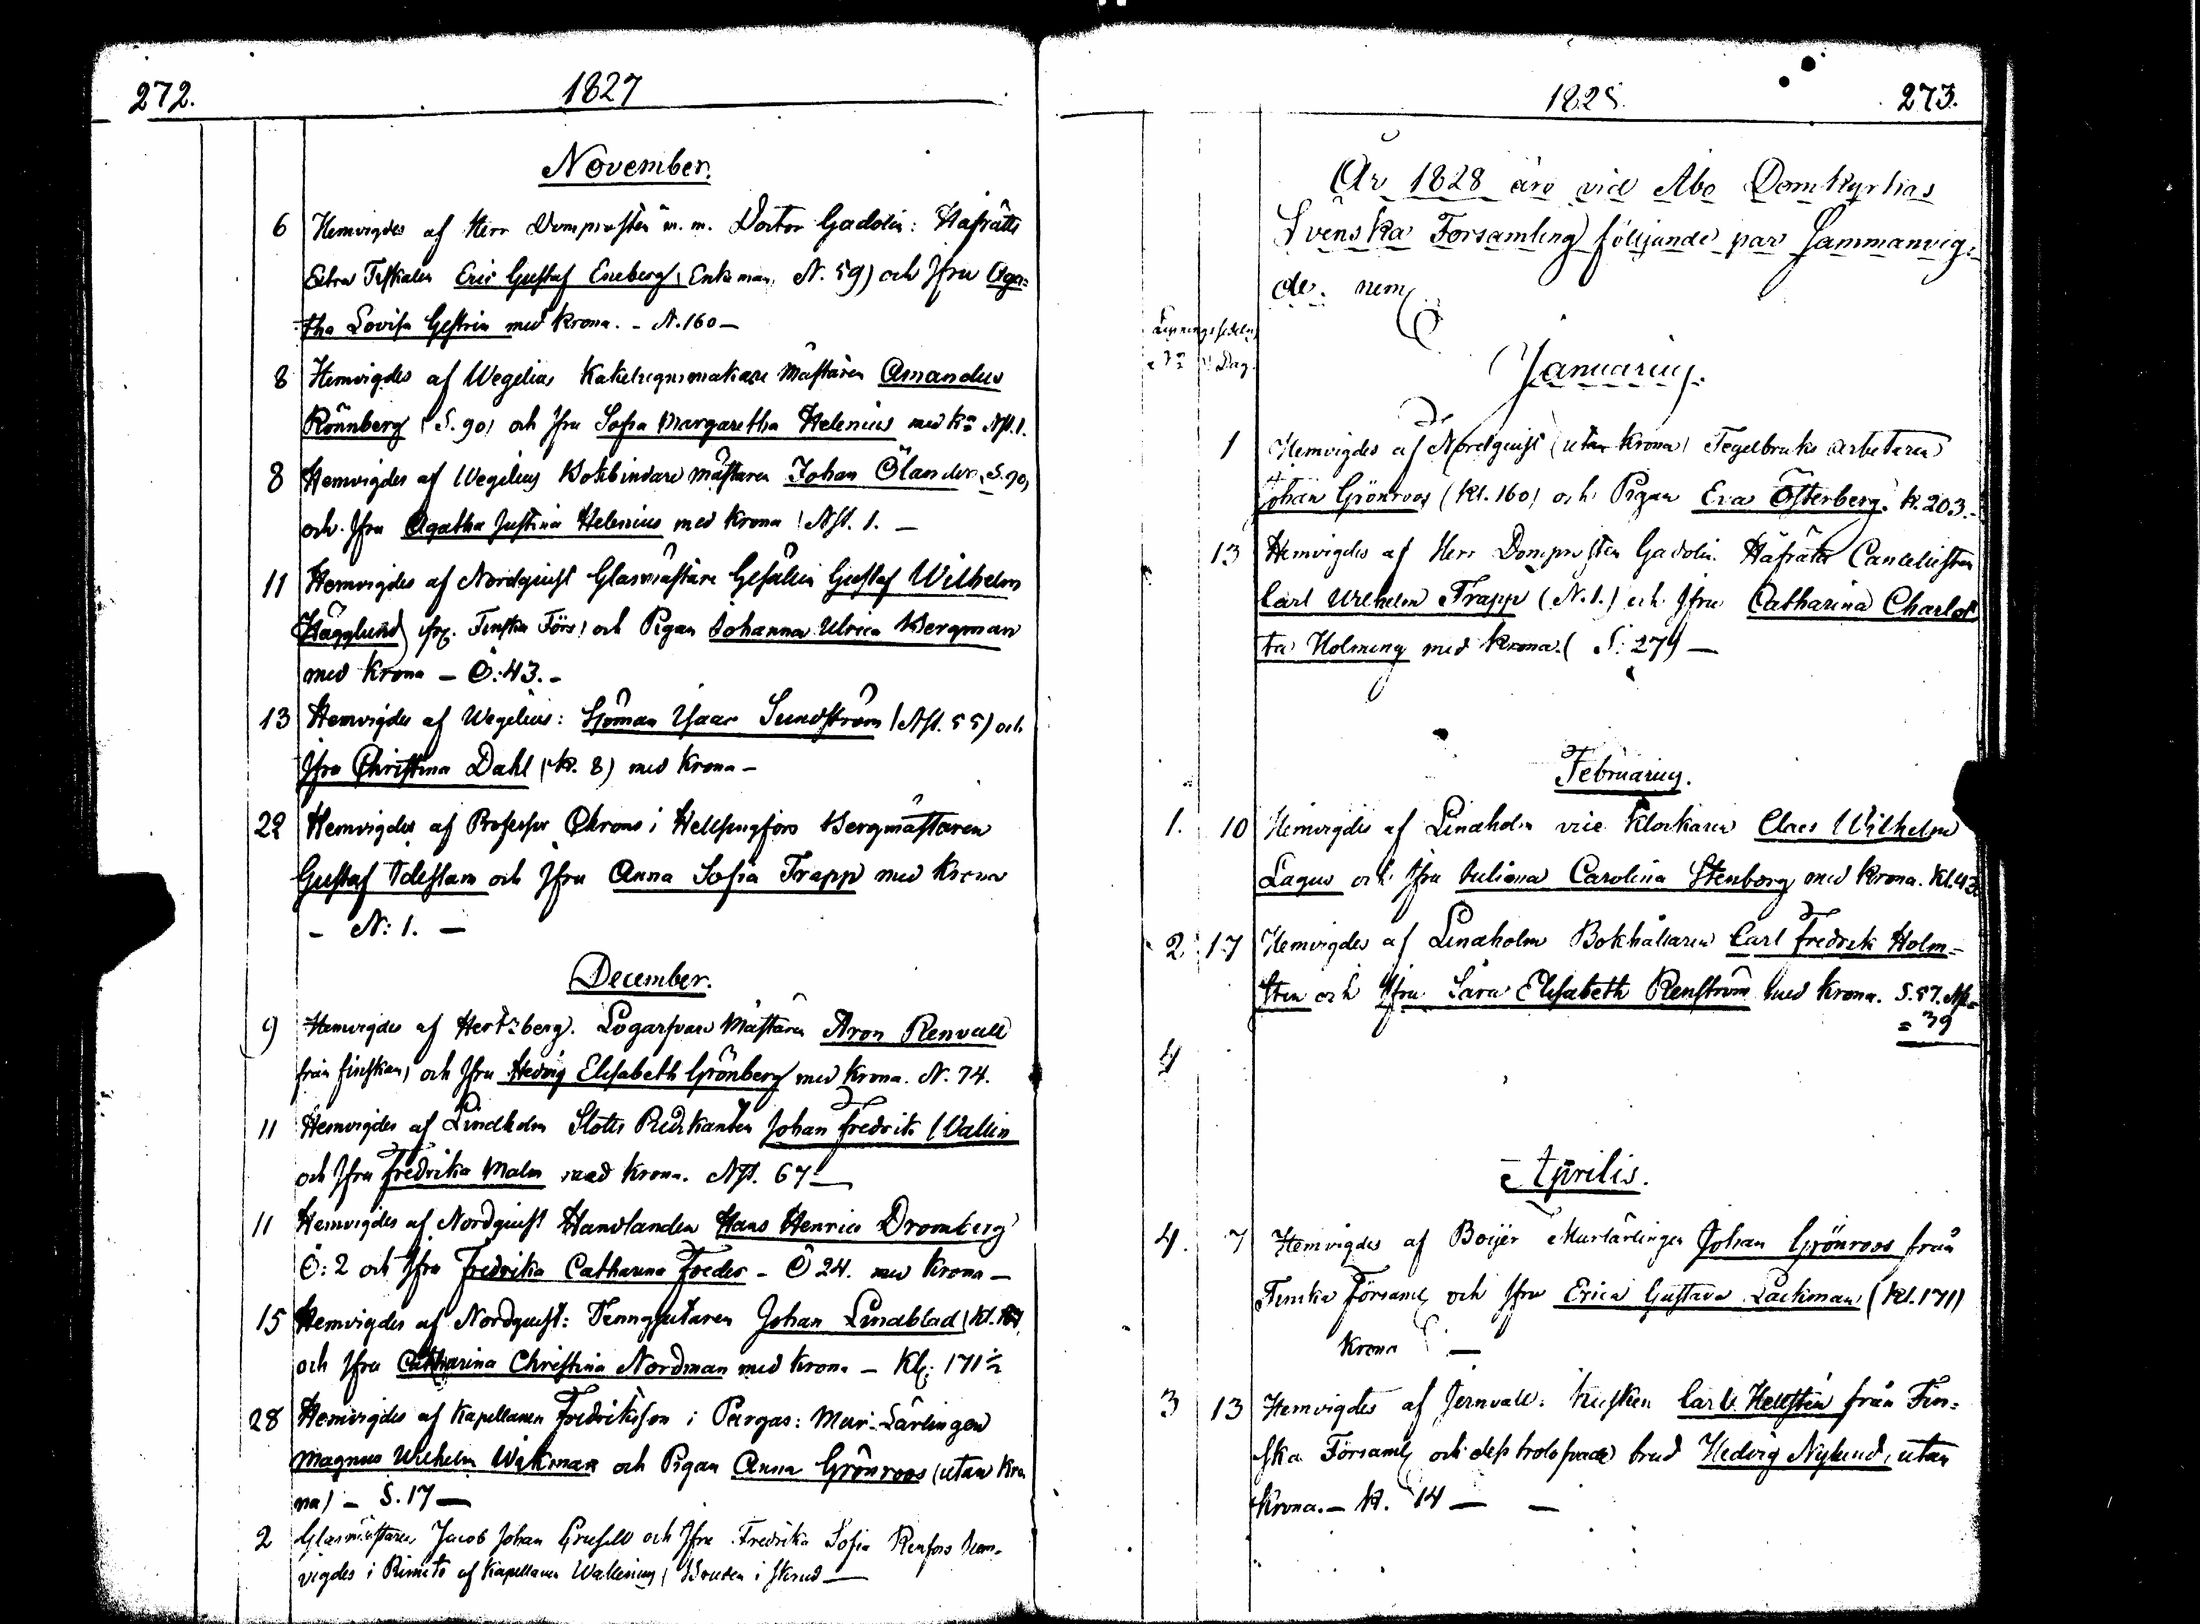 272.
1827
November.
6 Hemvigdes af Herr Domprosten m. m. Doctor Gadolin: Hofrätts
Extra Fiskalen Eric Gustaf Eneberg (Enkeman, N. 59) och Jfru Aga-
tha Lovisa Gestrin med krona. - N. 160 -
8 Hemvigdes af Wegelius Kakelugnsmakare Mästaren Amandus
Rönnberg (S. 90) och Jfru Sofia Margaretha Helenius med Kr. Aft. 1.
8 Hemvigdes af Wegelius Bokbindare mästaren Johan Ölander, S. 90,
och Jfru Agatha Justina Helenius med krona Aft. 1. -
11 Hemvigdes af Nordquist Glasmästare Gesällen Gustaf Wilhelm
Hägglund Finska Förs) och Pigan Johanna Ulrica Bergman
med Krona - Ö: 43. -
13 Hemvigdes af Wegelius: Sjöman Isaac Sundström (Aft. 55) och
Jfru Christina Dahl (Kl. 8) med Krona -
22 Hemvigdes af Professor i Helsingfors Bergmästaren
Gustaf Idestam och Jfru Anna Sofia Trapp med Krona
- N: 1. -
December.
9 Hemvigdes af Hertzberg. Logarfvare Mästaren Aron Renvall
från finskan) och Jfru Hedvig Elisabeth Grönberg med Krona. N. 74.
11 Hemvigdes af Lindholm Slotts Predikanten Johan Fredrik Wallin
och Jfru Fredrika Malm med Krona. Aft. 67 -
11 Hemvigdes af Nordquist Handlanden Hans Henric Dromberg
Ö: 2 och Jfru Fredrika Catharina Foeder - Ö 24. med Krona -
15 Hemvigdes af Nordquist: Tenngjutaren Johan Lindblad (Kl.
och Jfru Catharina Christina Nordman med Krona - Kl: 171 ½
28 Hemvigdes af Kapellanen Fredriksson i Pargas: Mur-Lärlingen
Magnus Wilhelm Wikman och Pigan Anna Grönroos (utan Kro
na) - S. 17 -
2 Glasmästaren Jacob Johan och Jfru Fredrika Sofia Renfors hem-
vigdes i Rimito af Kapellanen Wallenius (Bruden i skrud -
1828.
273.
År 1828 äro vid Åbo Domkyrkas
Svenska Församling följande par Sammanvig-
de. nem
Januarius.
1 Hemvigdes af Nordquist (utan Krona) Tegelbruks arbetaren
Johan Grönroos (Kl. 160) och Pigan Eva Österberg. Kl. 203. -
13 Hemvigdes af Herr Domprosten Gadolin. Hofrätts Cancelisten
Carl Wilhelm Trapp (N. 1.) och Jfru Catharina Charlot
ta Holming med Krona. (S: 279 -
Februarius.
1. 10 Hemvigdes af Lindholm vice Klockaren Claes Wilhelm
Lagus och Jfru Juliana Carolina Stenborg med Krona. Kl. 43
2 17 Hemvigdes af Lindholm Bokhållaren Carl Fredrik Holm-
sten och Jfru Sara Elisabeth Renström med Krona. S. 57. Aft.
= 39
4
Aprilis.
4. 7 Hemvigdes af Boijer Murlärlingen Johan Grönroos från
Finska Församl och Jfru Erica Gustava Lackman (Kl. 171)
Krona -
3 13 Hemvigdes af Jernvall: Kusken Carl Hellstén från Fin-
ska Församl och dess trolofvade brud Hedvig Nylund, utan
Krona. - Kl. 14 - -